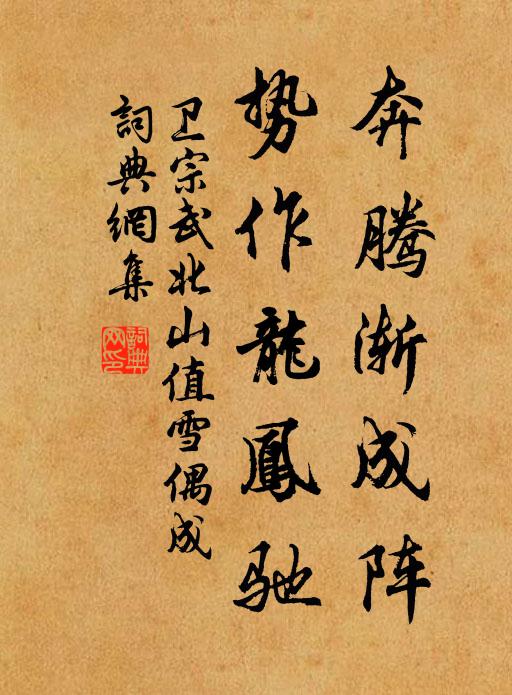 奔腾渐成阵
势作龍鳳驰
卫宗武北山值雪偶成
詞典網集
詞典网印